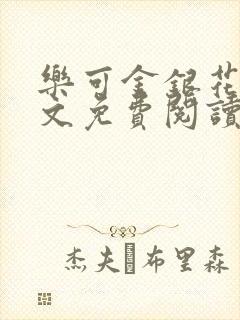 樂可金銀花
文免費閱讀
杰夫 布里森